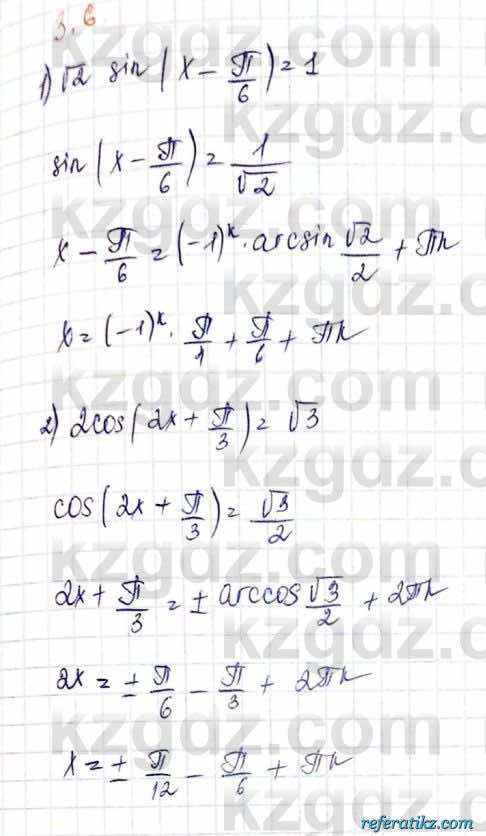 3.6
1) √2 sin(x - π/6) = 1
sin(x - π/6) = 1/√2
x - π/6 = (-1)^k · arcsin √2/2 + πk
x = (-1)^k · π/1 + π/6 + πk
2) 2cos(2x + π/3) = √3
cos(2x + π/3) = √3/2
2x + π/3 = ± arccos √3/2 + 2πk
2x = ± π/6 - π/3 + 2πk
x = ± π/12 - π/6 + πk
kzgdz.com
referatikz.com